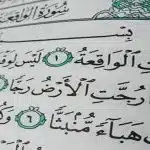 سُورَةُ الْوَاقِعَة
بِسْ
تِ الْوَاقِعَةُ ١ لَيْسَ لِوَقْ
رُجَّتِ الْأَرْضُ رَجًّا
هَبَآءً مُّنۢبَثًّا ٦ وَكُ